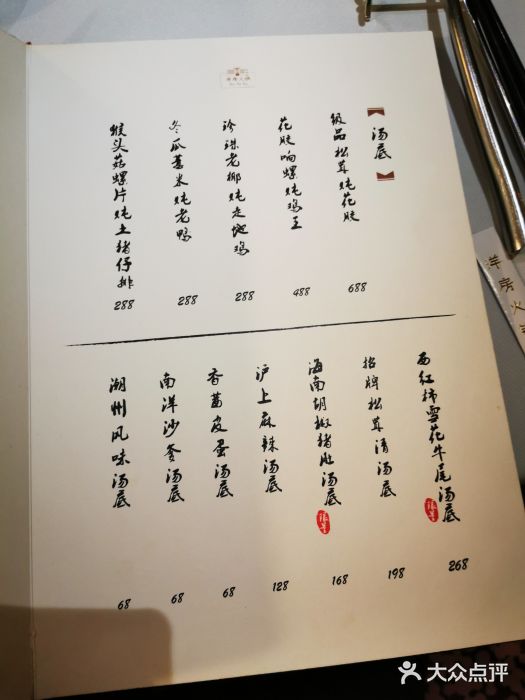 汤底
极品松茸炖花胶
688
花胶响螺炖鸡王
488
珍珠老椰炖走地鸡
288
冬瓜薏米炖老鸭
288
猴头菇螺片炖土猪仔排
288
西红柿雪花牛尾汤底
268
招牌松茸清汤底
198
海南胡椒猪肚汤底
168
沪上麻辣汤底
128
香菖皮蛋汤底
68
南洋沙爹汤底
68
潮州风味汤底
68
洋房火
大众点评